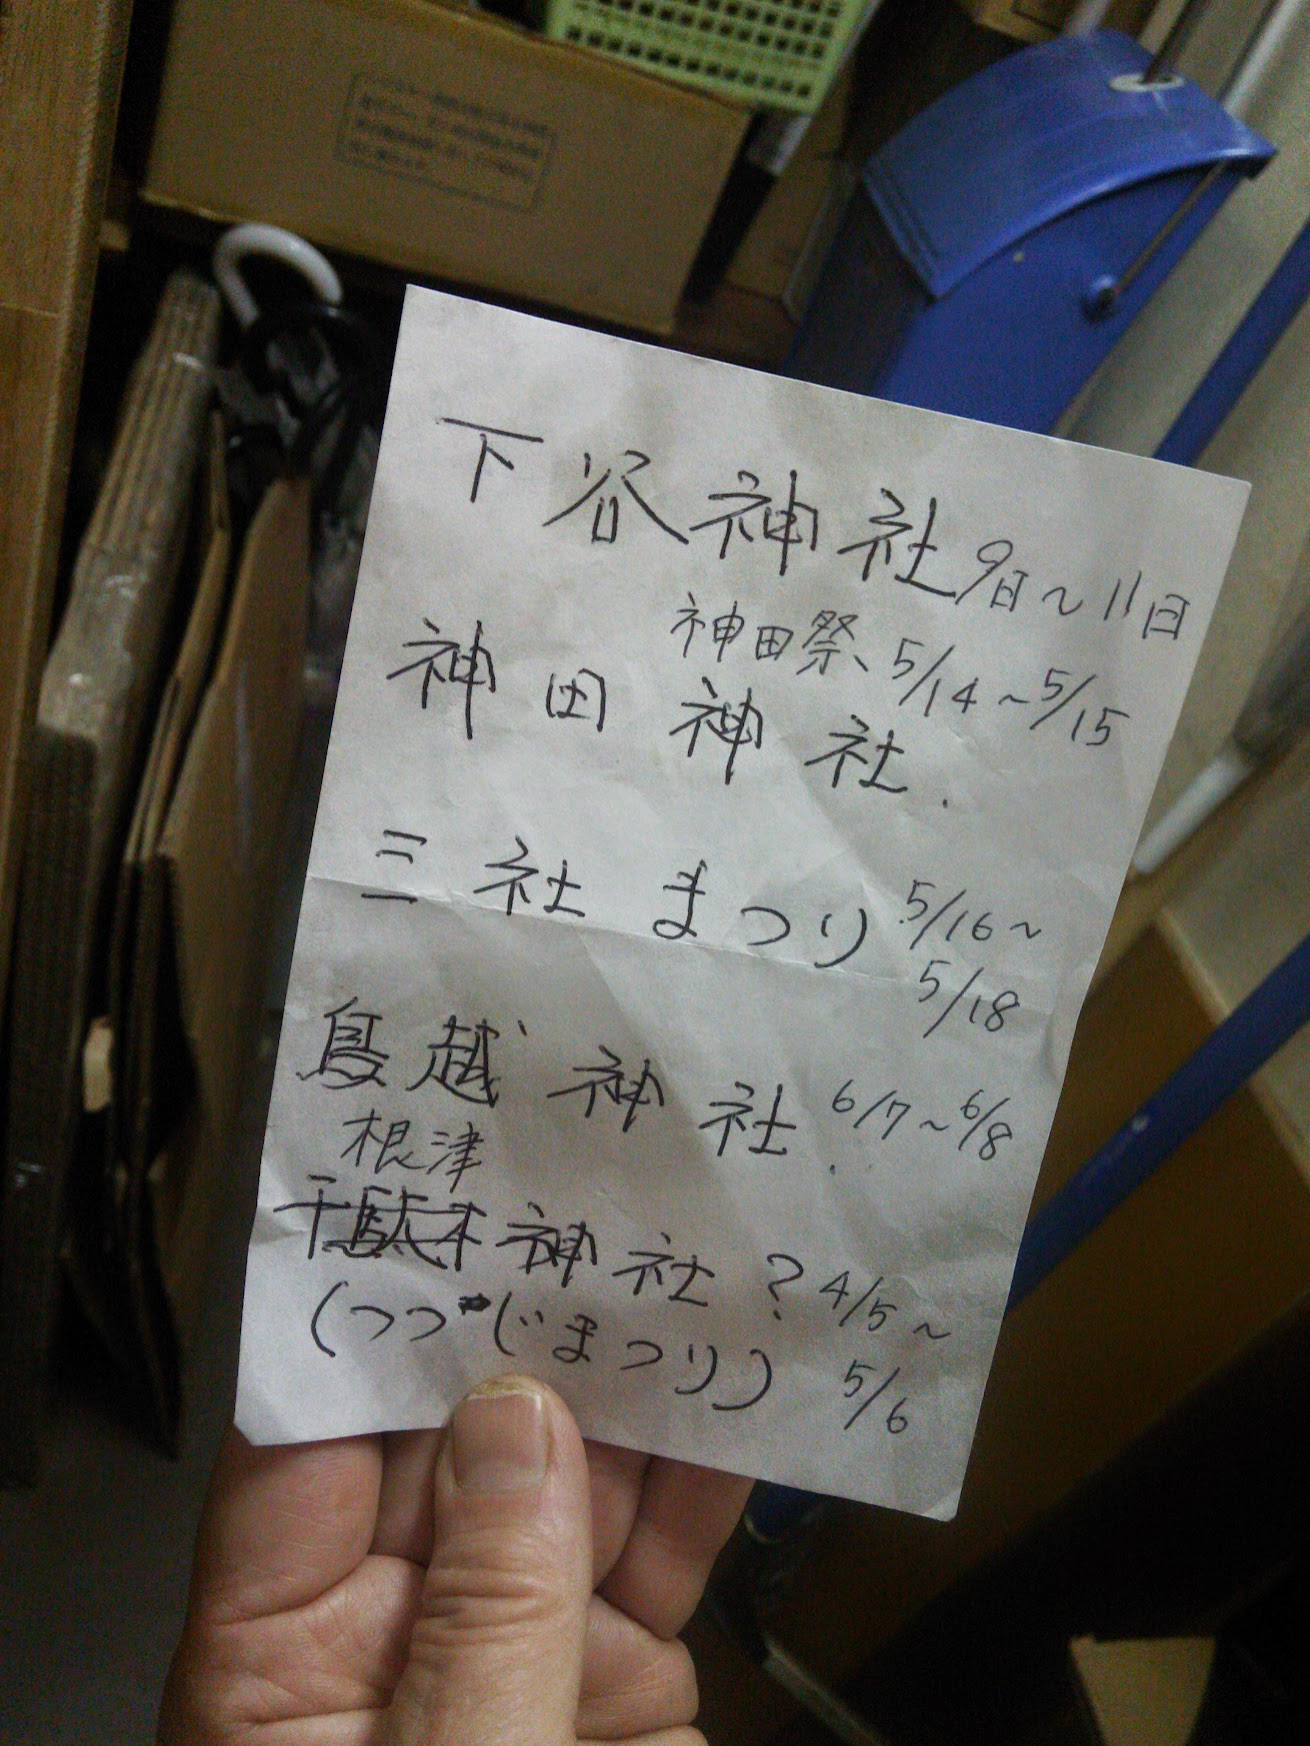 下谷神社 9日〜11日
神田祭、5/14〜5/15
神田神社.
三社まつり 5/16〜
5/18
鳥越神社. 6/7〜6/8
根津
千駄木神社? 4/5〜
(つつじまつり) 5/6